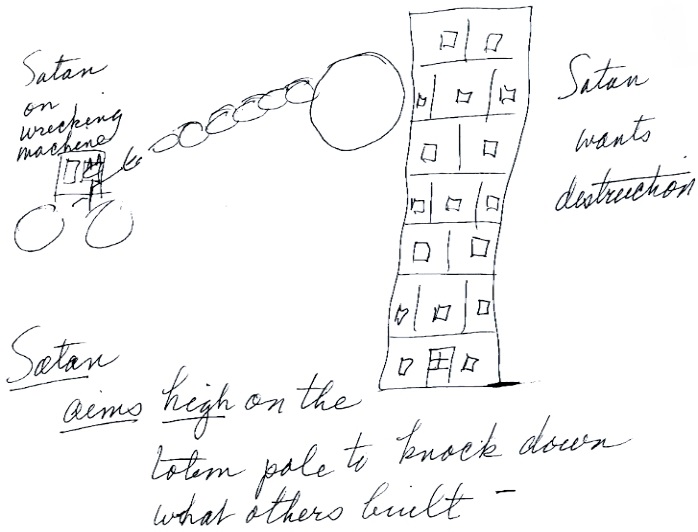 Satan
on
wrecking
machine
Satan
wants
destruction
Satan
aims high on the
totem pole to knock down
what others built –